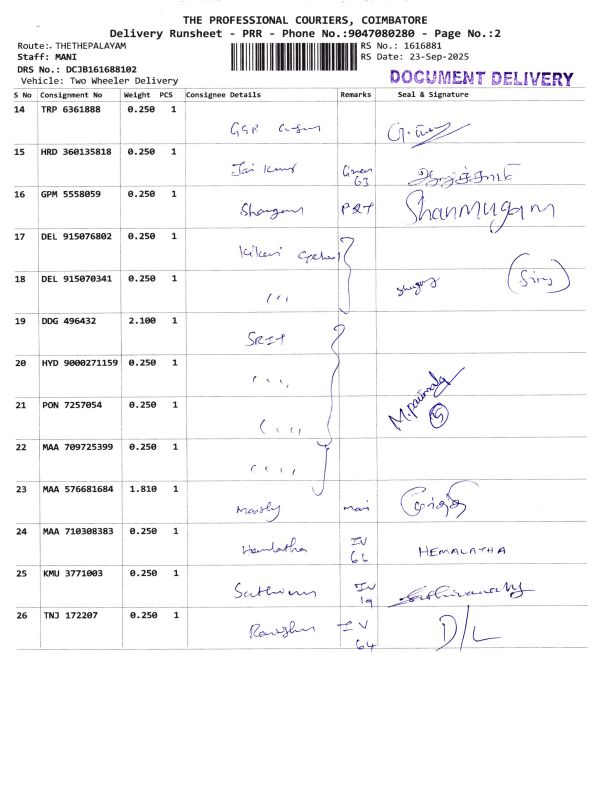 THE PROFESSIONAL COURIERS, COIMBATORE
Delivery Runsheet - PRR - Phone No.:9047080280 - Page No.:2
Route: THETHEPALAYAM
Staff: MANI
DRS No.: DCJB161688102
Vehicle: Two Wheeler Delivery
RS No.: 1616881
RS Date: 23-Sep-2025
DOCUMENT DELIVERY
S No Consignment No Weight PCS Consignee Details Remarks Seal & Signature
14 TRP 6361888 0.250 1
GSR
15 HRD 360135818 0.250 1
Jai Kumar 63
16 GPM 5558059 0.250 1
PRT Shanmugam
17 DEL 915076802 0.250 1
18 DEL 915070341 0.250 1
,,,
19 DDG 496432 2.100 1
SRIT
20 HYD 9000271159 0.250 1
,,,,
21 PON 7257054 0.250 1
,,,,
M.
22 MAA 709725399 0.250 1
,,,,
23 MAA 576681684 1.810 1
24 MAA 710308383 0.250 1
Hemlatha IV 66 HEMALATHA
25 KMU 3771003 0.250 1
IV 19
26 TNJ 172207 0.250 1
IV 64 D/L